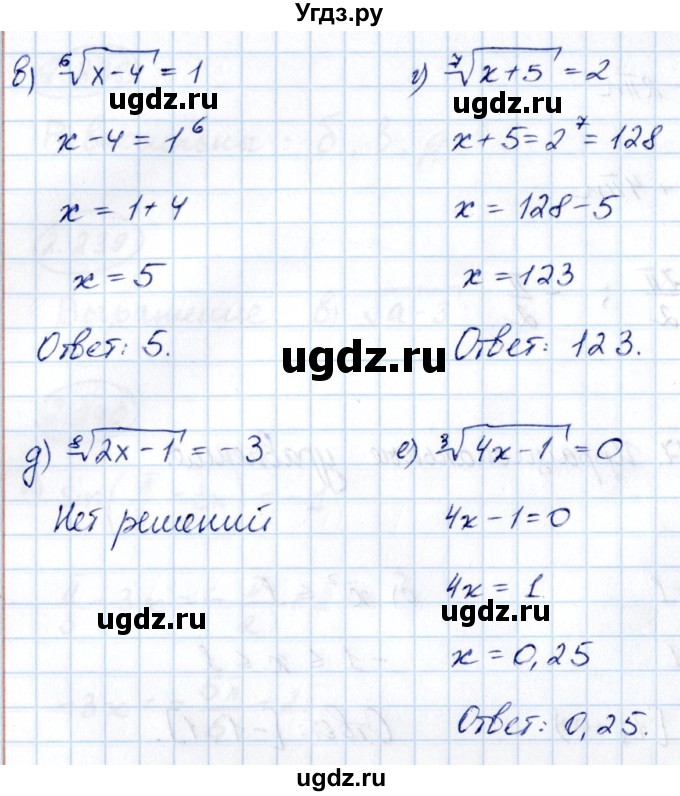 Угдз.ру
в) ⁶√(x-4) = 1
x-4 = 1⁶
x = 1+4
x = 5
Ответ: 5.
г) ⁷√(x+5) = 2
x+5 = 2⁷ = 128
x = 128-5
x = 123
Ответ: 123.
д) ⁸√(2x-1) = -3
Нет решений
е) ³√(4x-1) = 0
4x-1=0
4x = 1
x = 0,25
Ответ: 0,25.
ugdz.ru
ugdz.ru
ugdz.ru
ugdz.ru
ugdz.ru
ugdz.ru